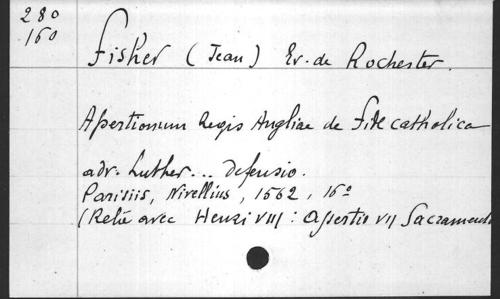 280
160
Fisher (Jean) Ev. de Rochester.
Assertionum Regis Angliae de fide catholica
adv. Luther... defensio.
Parisiis, Nivellius, 1562, 16º
(Relié avec Henri VIII : Assertio VII Sacrament